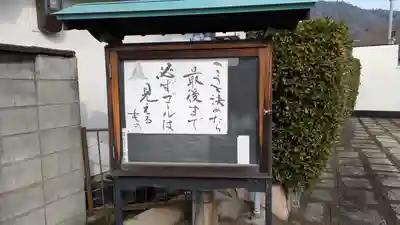 やろうと決めたら
最後まで
必ずゴールは
見える